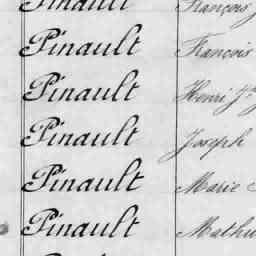 Pinault François
Pinault Francois
Pinault Henri Jh
Pinault Joseph
Pinault Marie
Pinault